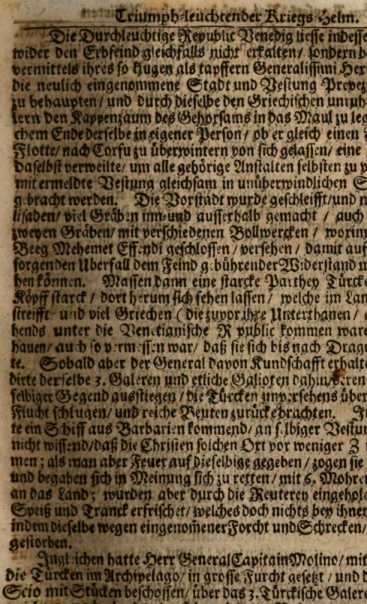 Triumph-leuchtender Kriegs-Helm.
Die Durchleuchtige Republic Venedig liesse indesse
wider den Erbfeind gleichfalls nicht erkalten/ sondern b
vermittels ihres so klugen als tapffern Generalissimi Her
die neulich eingenommene Stadt und Vestung Preve
zu behaupten/ und durch dieselbe den Griechischen unruh
lern den Kappenzaum des Gehorsams in das Maul zu leg
chem Ende derselbe in eigener Person/ ob er gleich einen
Flotte/ nach Corfu zu überwintern von sich gelassen/ eine
daselbst verweilte/ um alle gehörige Anstalten selbsten zu v
mit ermeldte Vestung gleichsam in unüberwindlichen S
gebracht werden. Die Vorstadt wurde geschleifft/ und n
lisaden/ viel Gräben inn- und ausserhalb gemacht / auch
zweyen Gräben/ mit verschiedenen Bollwercken/ worinn
Beeg Mehemet Effendi geschlossen/ versehen/ damit auf
sorgenden Uberfall dem Feind gebührender Widerstand
hen können. Massen dann eine starcke Parthey Türcke
Köpff starck / dort herum sich sehen lassen / welche im Lan
streifft und viel Griechen (die zuvor ihre Unterthanen /
hends unter die Venetianische Republic kommen ware
hauen/ auch so vermessen war/ daß sie sich bis nach Dragu
te. Sobald aber der General davon Kundschafft erhalte
dirte derselbe 3. Galeren und etliche Galioten dahin/
selbiger Gegend ausstiegen / die Türcken unversehens über
Flucht schlugen/ und reiche Beuten zurücke brachten. J
te ein Schiff aus Barbarien kommend/ an selbiger Vestun
nicht wissend/ daß die Christen solchen Ort vor weniger Z
men; als man aber Feuer auf dieselbige gegeben/ zogen sie
und begaben sich in Meinung sich zu retten/ mit 6. Mohre
an das Land; wurden aber durch die Reuterey eingehol
Speiß und Tranck erfrischet/ welches doch nichts bey ihnen
indem dieselbe wegen eingenom̃ener Forcht und Schrecken/
gestorben.
Ingleichen hatte Herr General Capitain Molino/ mit
die Türcken im Archipelago/ in grosse Furcht gesetzt / und d
Scio mit Stücken beschossen/ über das 3. Türckische Galere